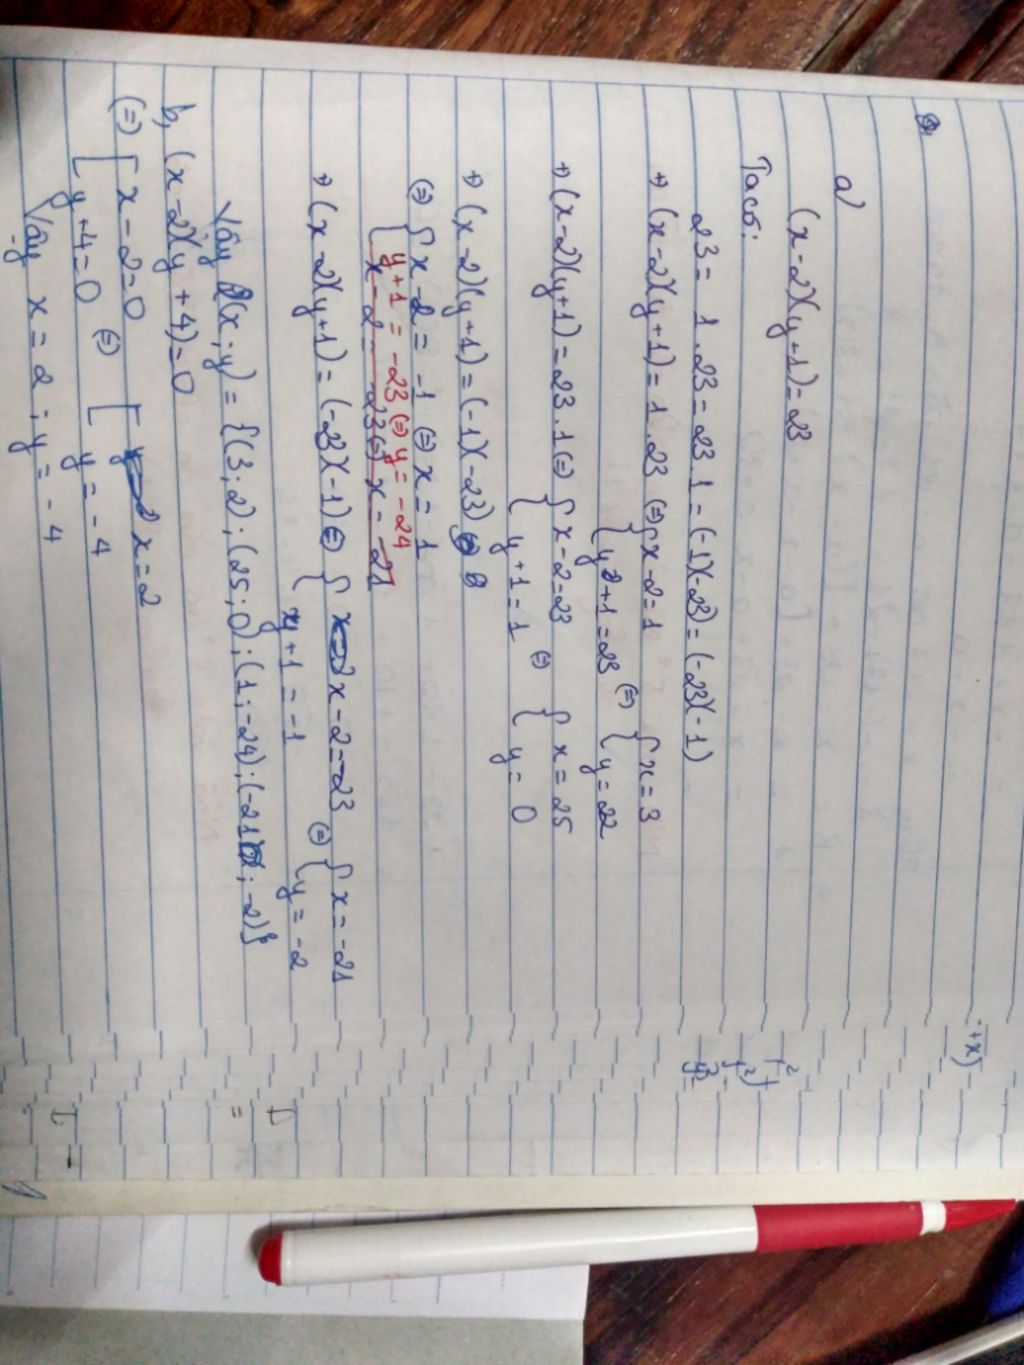 a)
(x-2)(y+1)=23
Ta có:
23 = 1.23 = 23.1 = (-1)(-23) = (-23)(-1)
+) (x-2)(y+1) = 1.23 (=) { x-2=1 (=) { x=3
{ y+1=23 { y=22
+) (x-2)(y+1) = 23.1 (=) { x-2=23 (=) { x=25
{ y+1=1 { y=0
+) (x-2)(y+1) = (-1)(-23)
(=) { x-2 = -1 (=) x = 1
{ y+1 = -23 (=) y = -24
x-2 = -23 (=) x = -21
+) (x-2)(y+1) = (-23)(-1) (=) { x-2=-23 (=) { x=-21
{ y+1 = -1 { y = -2
Vậy (x;y) = {(3;2);(25;0);(1;-24);(-21;-2)}
b, (x-2)(y+4)=0
(=) [ x-2=0 (=) [ x=2
[ y+4=0 [ y=-4
Vậy x=2; y=-4